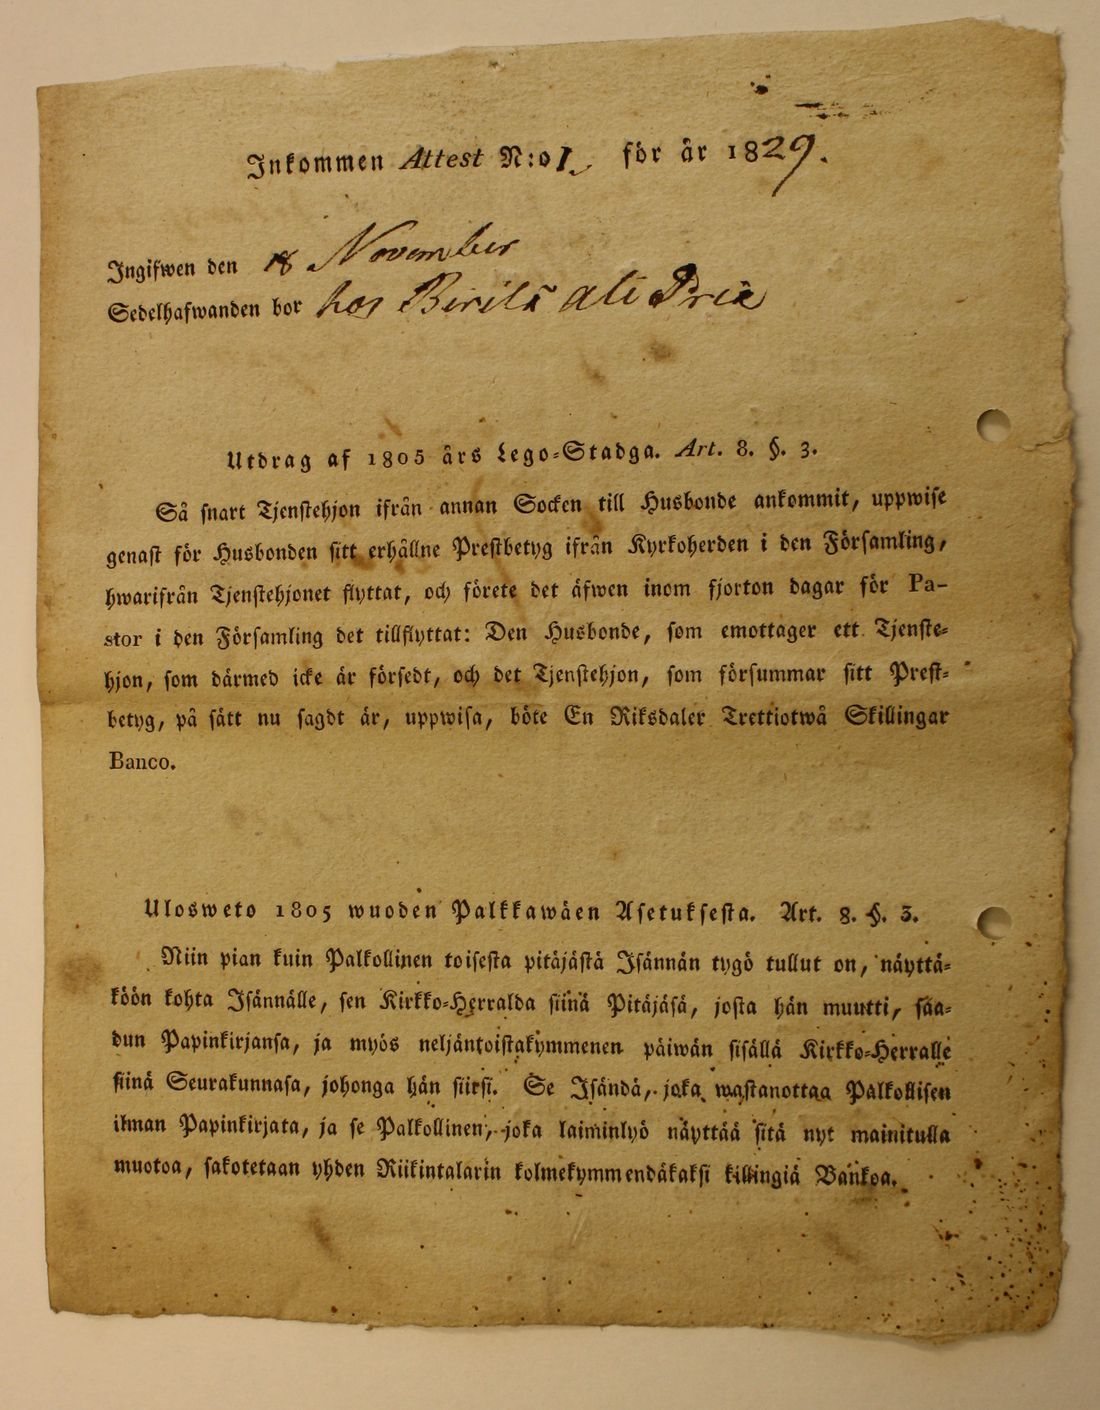 Inkommen Attest N:o 1. för år 1829.
Ingifwen den 18 November
Sedelhafwanden bor hos Birilä
Utdrag af 1805 års Lego-Stadga. Art. 8. §. 3.
Så snart Tjenstehjon ifrån annan Socken till Husbonde ankommit, uppwise
genast för Husbonden sitt erhållne Prestbetyg ifrån Kyrkoherden i den Församling,
hwarifrån Tjenstehjonet flyttat, och förete det äfwen inom fjorton dagar för Pa-
stor i den Församling det tillflyttat: Den Husbonde, som emottager ett Tjenste-
hjon, som därmed icke är försedt, och det Tjenstehjon, som försummar sitt Prest-
betyg, på sätt nu sagdt är, uppwisa, böte En Riksdaler Trettiotwå Skillingar
Banco.
Ulosweto 1805 wuoden Palkkawäen Asetuksesta. Art. 8. §. 3.
Niin pian kuin Palkollinen toisesta pitäjästä Isännän tygö tullut on, näyttä-
köön kohta Isännälle, sen Kirkko-Herralda siinä Pitäjäsä, josta hän muutti, saa-
dun Papinkirjansa, ja myös neljäntoistakymmenen päiwän sisällä Kirkko-Herralle
siinä Seurakunnasa, johonga hän siirsi. Se Isändä, joka wastanottaa Palkollisen
ilman Papinkirjata, ja se Palkollinen, joka laiminlyö näyttää sitä nyt mainitulla
muotoa, sakotetaan yhden Riikintalarin kolmekymmendäkaksi killingiä Bankoa.